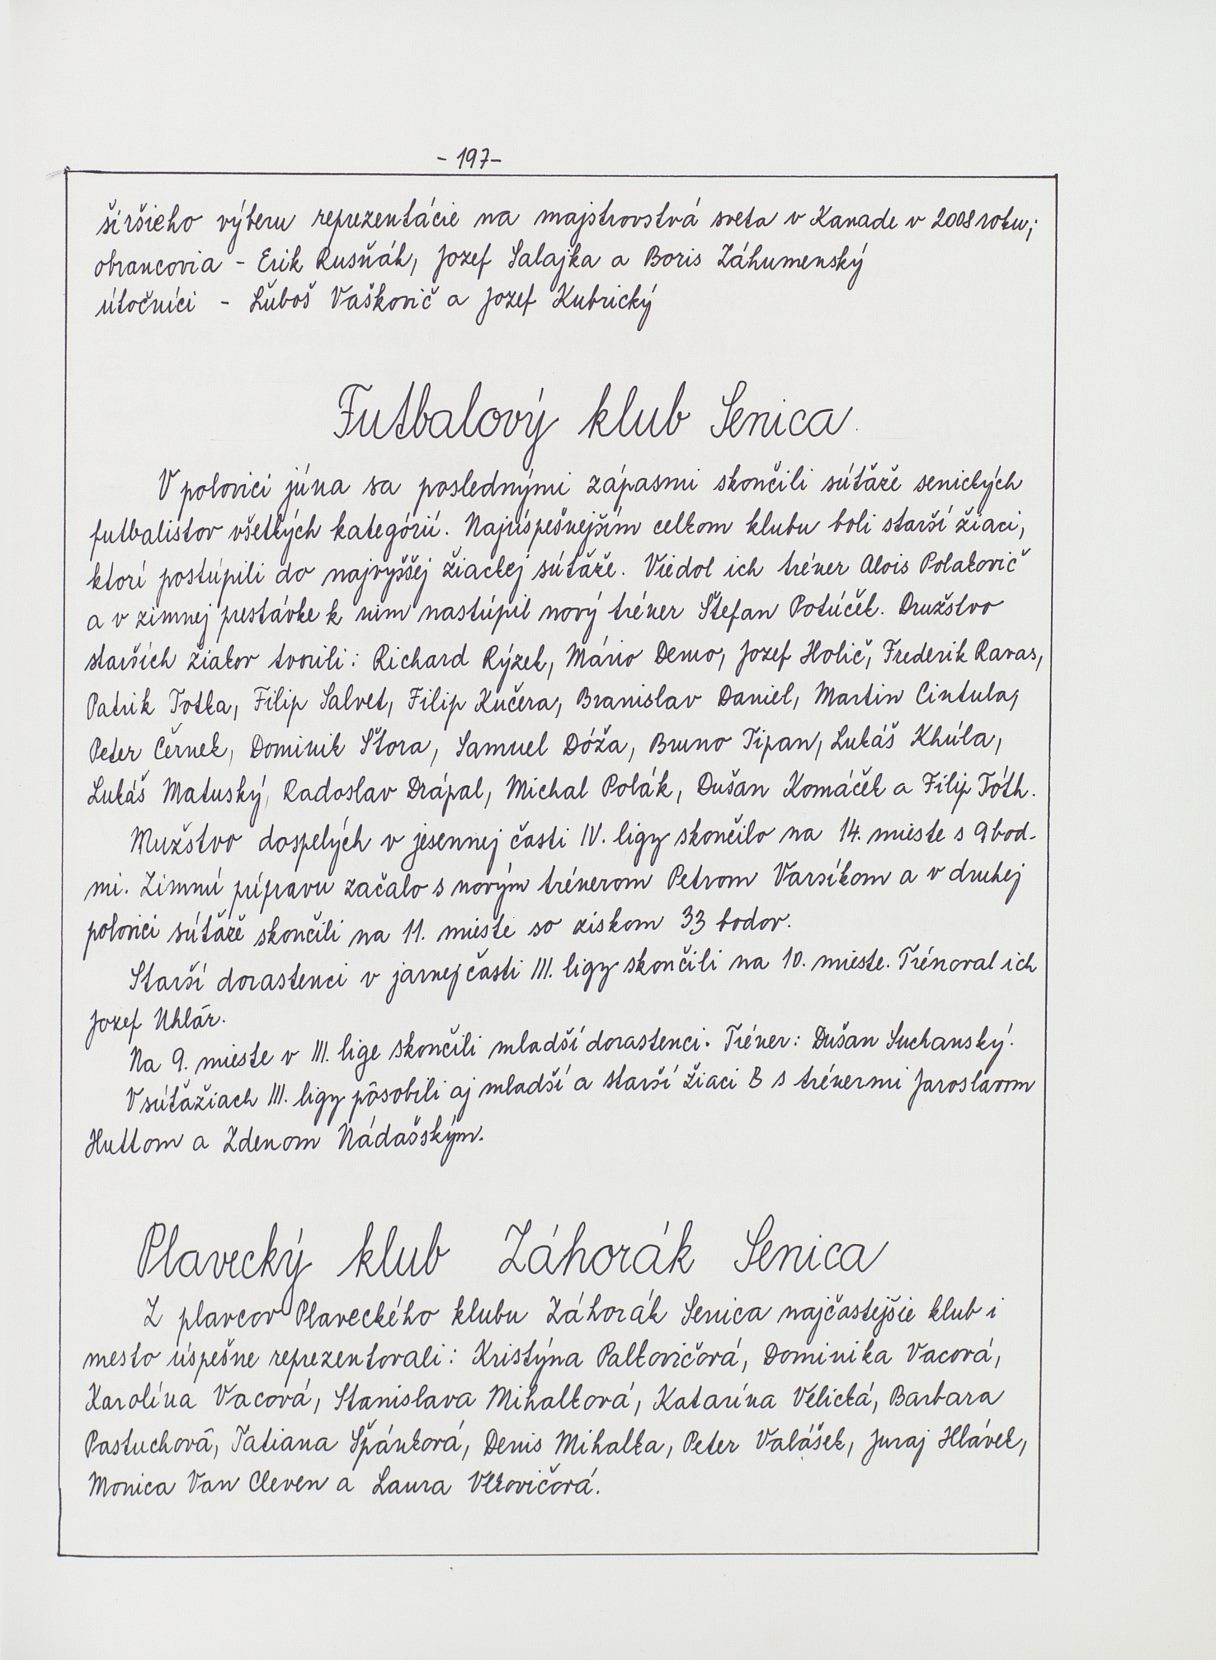 - 197-
širšieho výberu reprezentácie na majstrovstvá sveta v Kanade v 2008 roku;
obrancovia - Erik Rusňák, Jozef Salajka a Boris Záhumenský
útočníci - Ľuboš Vaškovič a Jozef Kubrický
Futbalový klub Senica.
V polovici júna sa poslednými zápasmi skončili súťaže senických
futbalistov všetkých kategórií. Najúspešnejším celkom klubu boli starší žiaci,
ktorí postúpili do najvyššej žiackej súťaže. Viedol ich tréner Alois Polakovič
a v zimnej prestávke k nim nastúpil nový tréner Štefan Potúček. Družstvo
starších žiakov tvorili: Richard Rýzek, Mário Demo, Jozef Holič, Frederik Ravas,
Patrik Totka, Filip Salvet, Filip Kučera, Branislav Daniel, Martin Cintula,
Peter Černek, Dominik Štora, Samuel Dóža, Bruno Tipan, Lukáš Khúla,
Lukáš Matuský, Radoslav Drápal, Michal Polák, Dušan Komáček a Filip Tóth.
Mužstvo dospelých v jesennej časti IV. ligy skončilo na 14. mieste s 9 bod-
mi. Zimnú prípravu začalo s novým trénerom Petrom Varsíkom a v druhej
polovici súťaže skončili na 11. mieste so ziskom 33 bodov.
Starší dorastenci v jarnej časti III. ligy skončili na 10. mieste. Trénoval ich
Jozef Uhlár.
Na 9. mieste v III. lige skončili mladší dorastenci. Tréner: Dušan Suchanský.
V súťažiach III. ligy pôsobili aj mladší a starší žiaci B s trénermi Jaroslavom
Huttom a Zdenom Nádašským.
Plavecký klub Záhorák Senica
Z plavcov Plaveckého klubu Záhorák Senica najčastejšie klub i
mesto úspešne reprezentovali: Kristýna Palkovičová, Dominika Vacová,
Karolína Vacová, Stanislava Mihalková, Katarína Velická, Barbara
Pastuchová, Tatiana Špánková, Denis Mihalka, Peter Valášek, Juraj Hlávek,
Monica Van Cleven a Laura Vlkovičová.